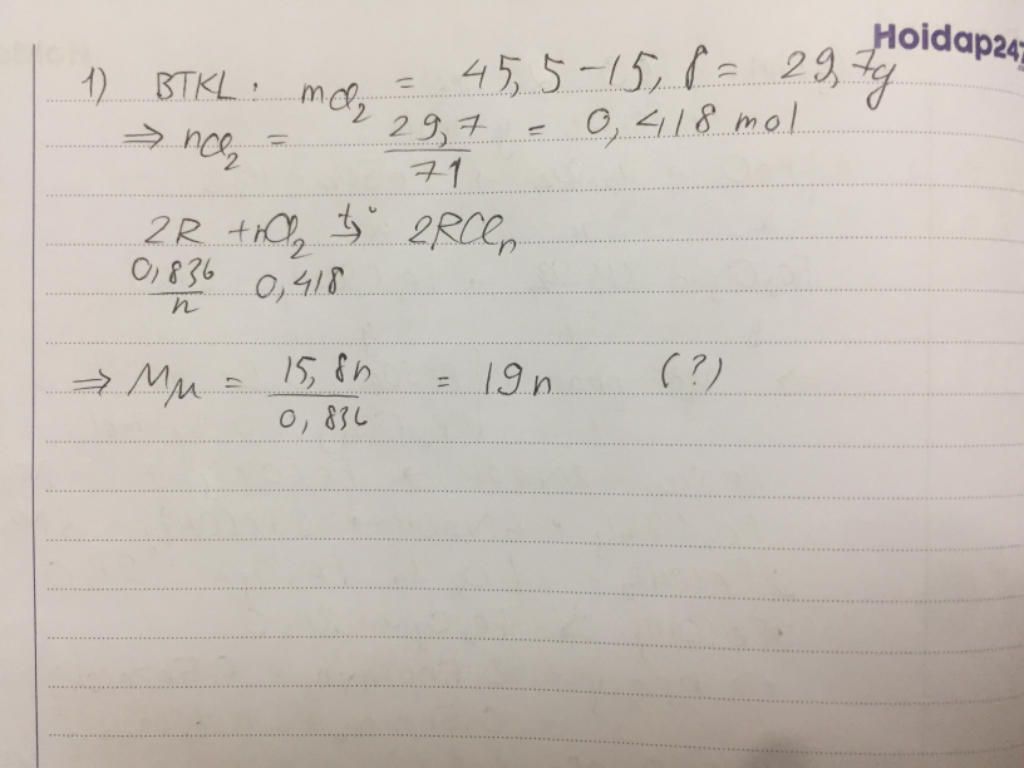 Hoidap247
1) BTKL: mCl₂ = 45,5-15,8 = 29,7g
⇒ nCl₂ = 29,7/71 = 0,418 mol
2R + nCl₂ t°→ 2RClₙ
0,836/n 0,418
⇒ M_M = 15,8n/0,836 = 19n (?)